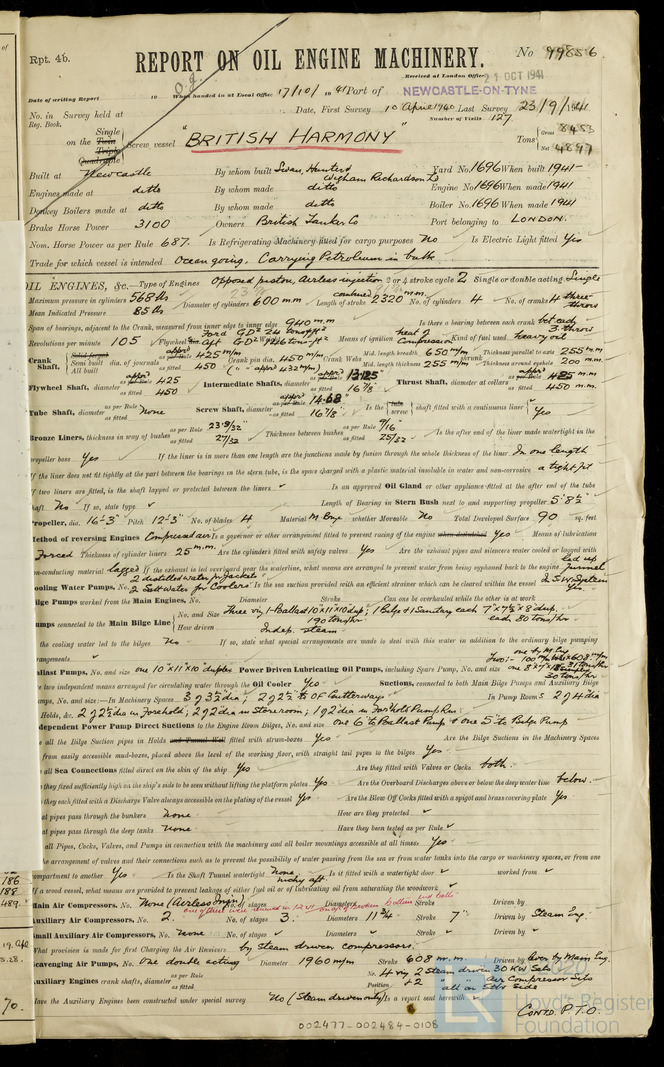 Rpt. 4b.
REPORT ON OIL ENGINE MACHINERY.
No 99856
Received at London Office 21 OCT 1941
Date of writing Report 19 When handed in at Local Office 17/10/ 1941 Port of NEWCASTLE-ON-TYNE
No. in Survey held at Date, First Survey 10 April 1940 Last Survey 23/9/1941
Reg. Book. Number of Visits 127
on the Single Twin Triple Quadruple Screw vessel "BRITISH HARMONY" Tons Gross 8453 Net 4897
Built at Newcastle By whom built Swan, Hunter & Wigham Richardson Ld Yard No. 1696 When built 1941
Engines made at ditto By whom made ditto Engine No. 1696 When made 1941
Donkey Boilers made at ditto By whom made ditto Boiler No. 1696 When made 1941
Brake Horse Power 3100 Owners British Tanker Co Port belonging to LONDON.
Nom. Horse Power as per Rule 687. Is Refrigerating Machinery fitted for cargo purposes No Is Electric Light fitted Yes
Trade for which vessel is intended Ocean going, Carrying Petroleum in bulk
OIL ENGINES, &c.—Type of Engines Opposed piston, Airless injection 2 or 4 stroke cycle 2 Single or double acting Single
Maximum pressure in cylinders 568 lbs Diameter of cylinders 600 mm Length of stroke combined 2320 mm No. of cylinders 4 No. of cranks 4 three throw
Mean Indicated Pressure 85 lbs
Span of bearings, adjacent to the Crank, measured from inner edge to inner edge 940 mm Is there a bearing between each crank bet each 3-throw
Revolutions per minute 105 Flywheel Means of ignition heat & Compression Kind of fuel used heavy oil
Crank Shaft, Solid forged Semi built All built dia. of journals appd 425 m/m as fitted 450 Crank pin dia. 450 m/m Crank Webs Mid. length breadth 650 m/m Thickness parallel to axis 255 mm
(appd 432 m/m) Mid. length thickness 255 mm shrunk Thickness around eyehole 200 mm
Flywheel Shaft, diameter appd 425 as fitted 450 Intermediate Shafts, diameter appd 13.125 as fitted 16 7/8" Thrust Shaft, diameter at collars appd 425 m.m. as fitted 450 m.m.
Tube Shaft, diameter as per Rule None as fitted Screw Shaft, diameter appd 14.68 as fitted 16 7/8" Is the tube screw shaft fitted with a continuous liner Yes
Bronze Liners, thickness in way of bushes as per Rule 23.8/32" as fitted 27/32 Thickness between bushes as per Rule 9/16" as fitted 25/32 Is the after end of the liner made watertight in the
propeller boss Yes If the liner is in more than one length are the junctions made by fusion through the whole thickness of the liner In one length
If the liner does not fit tightly at the part between the bearings in the stern tube, is the space charged with a plastic material insoluble in water and non-corrosive a tight fit
If two liners are fitted, is the shaft lapped or protected between the liners Is an approved Oil Gland or other appliance fitted at the after end of the tube
shaft No If so, state type Length of Bearing in Stern Bush next to and supporting propeller 5' 8½"
Propeller, dia. 16'-3" Pitch 12'-3" No. of blades 4 Material M Bnze whether Moveable No Total Developed Surface 90 sq. feet
Method of reversing Engines Compressed air Is a governor or other arrangement fitted to prevent racing of the engine when declutched Yes Means of lubrication
Forced Thickness of cylinder liners 25 m.m. Are the cylinders fitted with safety valves Yes Are the exhaust pipes and silencers water cooled or lagged with
non-conducting material lagged If the exhaust is led overboard near the waterline, what means are arranged to prevent water from being syphoned back to the engine led up funnel
Cooling Water Pumps, No. 2 distilled water for Jackets 2 Salt water for Coolers Is the sea suction provided with an efficient strainer which can be cleared within the vessel Yes
Bilge Pumps worked from the Main Engines, No. Diameter Stroke Can one be overhauled while the other is at work
Pumps connected to the Main Bilge Line No. and Size Three viz 1-Ballast 10"x11"x10" dup; 1 Bilge & 1 Sanitary each 7"x7½"x8" dup.
190 tons/hr each 80 tons/hr
How driven Indep. steam
Is the cooling water led to the bilges No If so, state what special arrangements are made to deal with this water in addition to the ordinary bilge pumping
arrangements
Ballast Pumps, No. and size one 10"x11"x10" duplex Power Driven Lubricating Oil Pumps, including Spare Pump, No. and size
Are two independent means arranged for circulating water through the Oil Cooler Yes Suctions, connected to both Main Bilge Pumps and Auxiliary Bilge
Pumps, No. and size:—In Machinery Spaces 3 @ 3½ dia; 2 @ 2½ to OF Gutterways In Pump Room 2 @ 4 dia
Holds, &c. 2 @ 2½ dia in Forehold; 2 @ 2 dia in Storeroom; 1 @ 2 dia in Forhold Pump Rm
Independent Power Pump Direct Suctions to the Engine Room Bilges, No. and size One 6" to Ballast Pump & one 5" to Bilge Pump
Are all the Bilge Suction pipes in Holds and Tunnel Well fitted with strum-boxes Yes Are the Bilge Suctions in the Machinery Spaces
from easily accessible mud-boxes, placed above the level of the working floor, with straight tail pipes to the bilges Yes
Are all Sea Connections fitted direct on the skin of the ship Yes Are they fitted with Valves or Cocks both
Are they fixed sufficiently high on the ship's side to be seen without lifting the platform plates Yes Are the Overboard Discharges above or below the deep water line below.
Are they each fitted with a Discharge Valve always accessible on the plating of the vessel Yes Are the Blow Off Cocks fitted with a spigot and brass covering plate Yes
What pipes pass through the bunkers None How are they protected
What pipes pass through the deep tanks None Have they been tested as per Rule
Are all Pipes, Cocks, Valves, and Pumps in connection with the machinery and all boiler mountings accessible at all times Yes
Is the arrangement of valves and their connections such as to prevent the possibility of water passing from the sea or from water tanks into the cargo or machinery spaces, or from one
compartment to another Yes Is the Shaft Tunnel watertight None mchy aft Is it fitted with a watertight door worked from
If a wood vessel, what means are provided to prevent leakage of either fuel oil or of lubricating oil from saturating the woodwork
Main Air Compressors, No. None (Airless Injn) No. of stages Diameters Stroke Driven by
Auxiliary Air Compressors, No. 2. No. of stages 3 Diameters 11 3/4" Stroke 7" Driven by Steam Eng.
Small Auxiliary Air Compressors, No. None No. of stages Diameters Stroke Driven by
What provision is made for first Charging the Air Receivers by steam driven compressors.
Scavenging Air Pumps, No. One double acting Diameter 1960 m/m Stroke 608 m.m. Driven by lever by Main Eng.
Auxiliary Engines crank shafts, diameter as per Rule as fitted No. 4 viz 2 Steam driven 30 KW Sets
Position +2 " " air Compressor Sets
all on Stbd side
Have the Auxiliary Engines been constructed under special survey No (Steam driven only) Is a report sent herewith
CONTD. P.T.O.
002477-002484-0108
© 2020
LR
Lloyd's Register
Foundation
186
188
489.
19. Apl
5.28.
70.